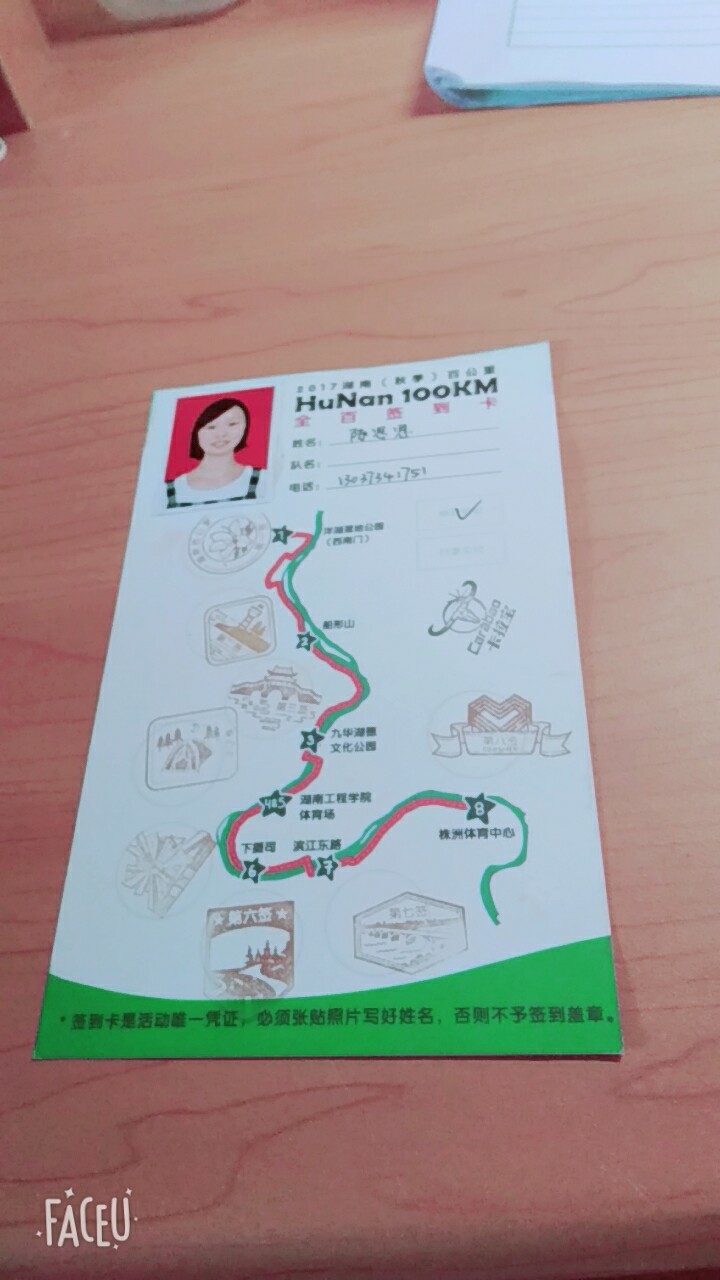 2017湖南（秋季）百公里
HuNan 100KM
全百签到卡
姓名：
队名：
电话：13037341751
1
洋湖湿地公园
（西南门）
2
船形山
Carabao
卡拉宝
第三签
3
九华湖德
文化公园
第八签
4&5
湖南工程学院
体育场
8
株洲体育中心
下摄司
滨江东路
6
7
第六签
第七签
*签到卡是活动唯一凭证，必须张贴照片写好姓名，否则不予签到盖章。
FACEU